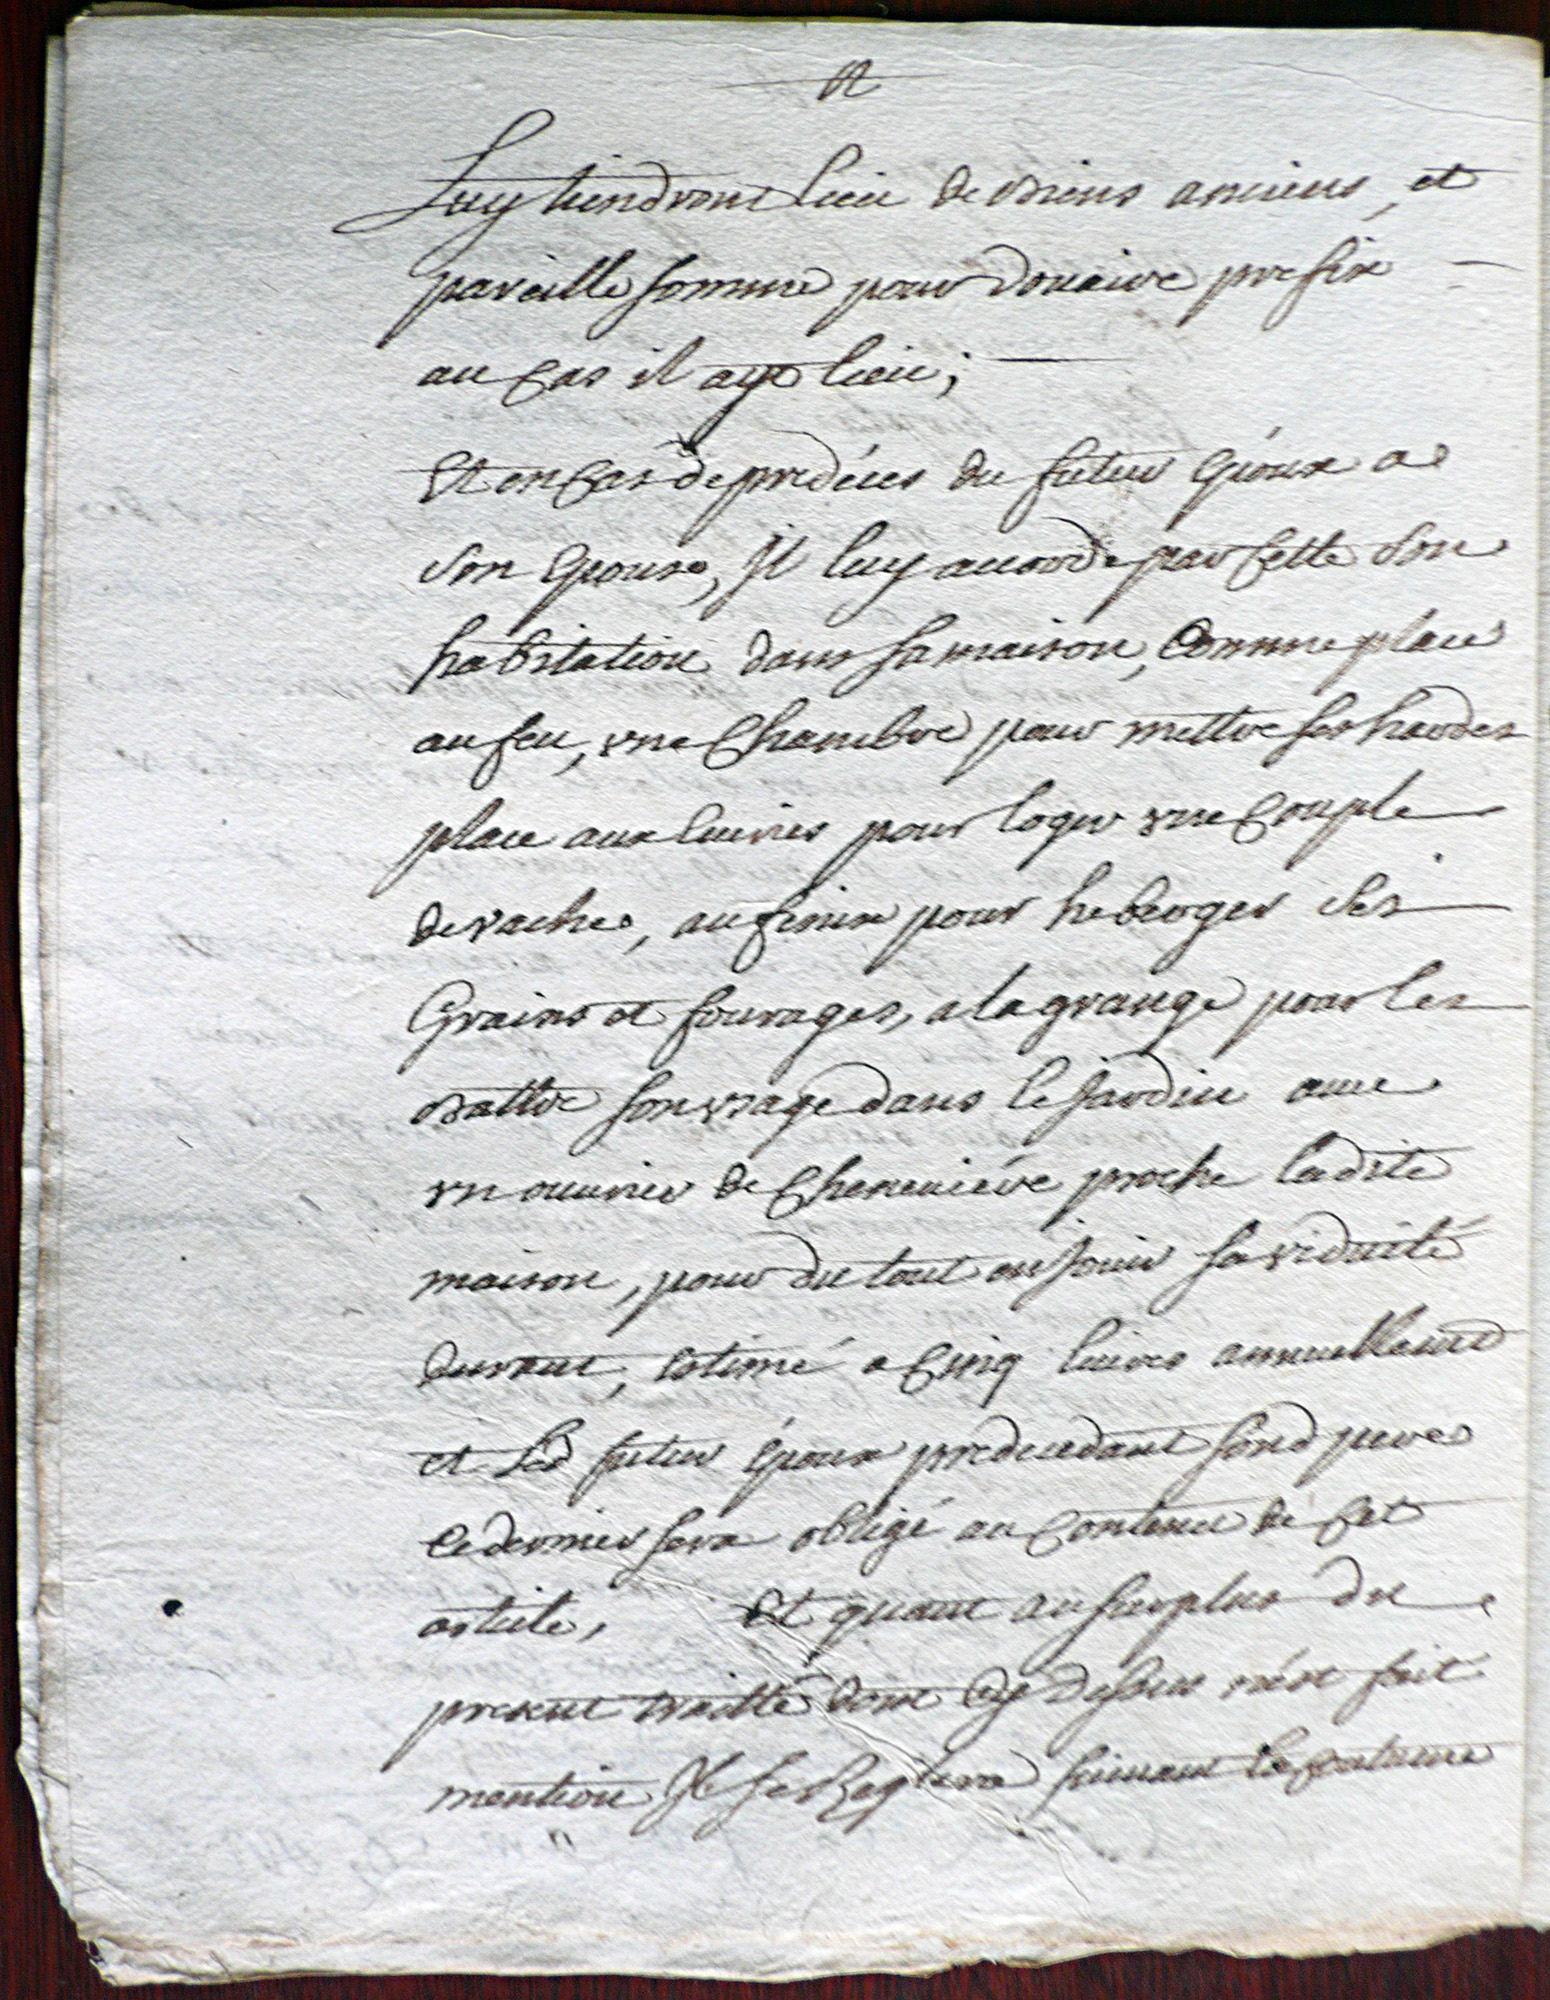 Luy tiendront lieu de biens anciens, et
pareille somme pour douaire prefix
au cas il aye lieu;
Et en cas de predéces du futur Epoux a
son Epouse, Il luy accorde par cette son
habitation dans sa maison, Comme place
au feu, vne Chambre pour mettre ses hardes
place aux Ecuries pour loger vne couple
de vaches, au fenix pour heberger ses
Grains et fourages, a la grange pour les
battre son vsage dans le Jardin avec
vn ouvrier de Cheneviére proche ladite
maison, pour du tout en Jouir sa viduité
durant, estimé a Cinq livres annuellement
et led futur Epoux predecedant sond pere
Ce dernier sera obligé au Contenu de cet
article, Et quant au surplus du
present traitté dont Cy dessus n'est fait
mention Il se Reglera suivant la Coutume